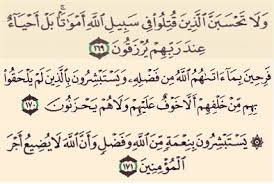 وَلَا تَحْسَبَنَّ ٱلَّذِينَ قُتِلُوا۟ فِى سَبِيلِ ٱللَّهِ أَمْوَٰتًۢا ۚ بَلْ أَحْيَآءٌ
عِندَ رَبِّهِمْ يُرْزَقُونَ ١٦٩
فَرِحِينَ بِمَآ ءَاتَىٰهُمُ ٱللَّهُ مِن فَضْلِهِۦ وَيَسْتَبْشِرُونَ بِٱلَّذِينَ لَمْ يَلْحَقُوا۟
بِهِم مِّنْ خَلْفِهِمْ أَلَّا خَوْفٌ عَلَيْهِمْ وَلَا هُمْ يَحْزَنُونَ ١٧٠
۞ يَسْتَبْشِرُونَ بِنِعْمَةٍ مِّنَ ٱللَّهِ وَفَضْلٍ وَأَنَّ ٱللَّهَ لَا يُضِيعُ أَجْرَ
ٱلْمُؤْمِنِينَ ١٧١